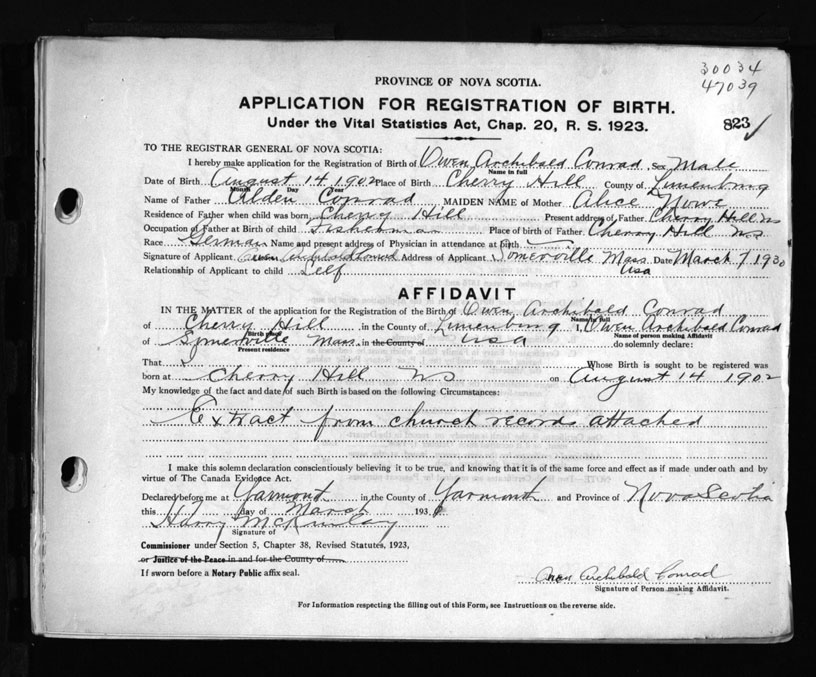 30034
47039
PROVINCE OF NOVA SCOTIA.
APPLICATION FOR REGISTRATION OF BIRTH.
Under the Vital Statistics Act, Chap. 20, R. S. 1923.
823
TO THE REGISTRAR GENERAL OF NOVA SCOTIA:
I hereby make application for the Registration of Birth of Owen Archibald Conrad, Sex Male
Name in full
Date of Birth August 14 1902 Place of Birth Cherry Hill County of Lunenburg
Month Day Year
Name of Father Alden Conrad MAIDEN NAME of Mother Alice Nowe
Residence of Father when child was born Cherry Hill Present address of Father Cherry Hill NS
Occupation of Father at Birth of child Fisherman Place of birth of Father Cherry Hill N.S.
Race German Name and present address of Physician in attendance at birth
Signature of Applicant Owen Archibald Conrad Address of Applicant Somerville Mass. Date March 7 1930
Relationship of Applicant to child Self USA
AFFIDAVIT
IN THE MATTER of the application for the Registration of the Birth of Owen Archibald Conrad
Name in full
of Cherry Hill in the County of Lunenburg I, Owen Archibald Conrad
Birth place Name of person making Affidavit
of Somerville Mass. in the County of USA do solemnly declare:
Present residence
That Whose Birth is sought to be registered was
born at Cherry Hill NS on August 14 1902
My knowledge of the fact and date of such Birth is based on the following Circumstances:
Extract from church records attached
I make this solemn declaration conscientiously believing it to be true, and knowing that it is of the same force and effect as if made under oath and by
virtue of The Canada Evidence Act.
Declared before me at Yarmouth in the County of Yarmouth and Province of Nova Scotia
this day of March 1930
Harry McKinlay
Signature of
Commissioner under Section 5, Chapter 38, Revised Statutes, 1923,
or Justice of the Peace in and for the County of
If sworn before a Notary Public affix seal.
Owen Archibald Conrad
Signature of Person making Affidavit.
For Information respecting the filling out of this Form, see Instructions on the reverse side.